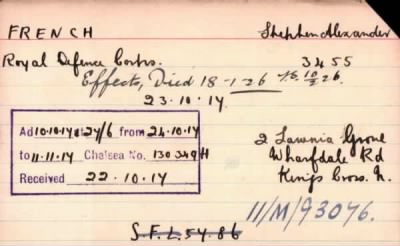 FRENCH Stephen Alexander
Royal Defence Corps. 3455
Effects, Died 18-1-26 10/2 26.
23.10.17
Ad 10.10.17 @ 27/6 from 24.10.17
to 11.11.17 Chelsea No. 130349H
Received 22.10.17
2 Lawnia Grove
Wharfdale Rd
Kings Cross. N.
11/M/93076.
S.F.L. 54.86